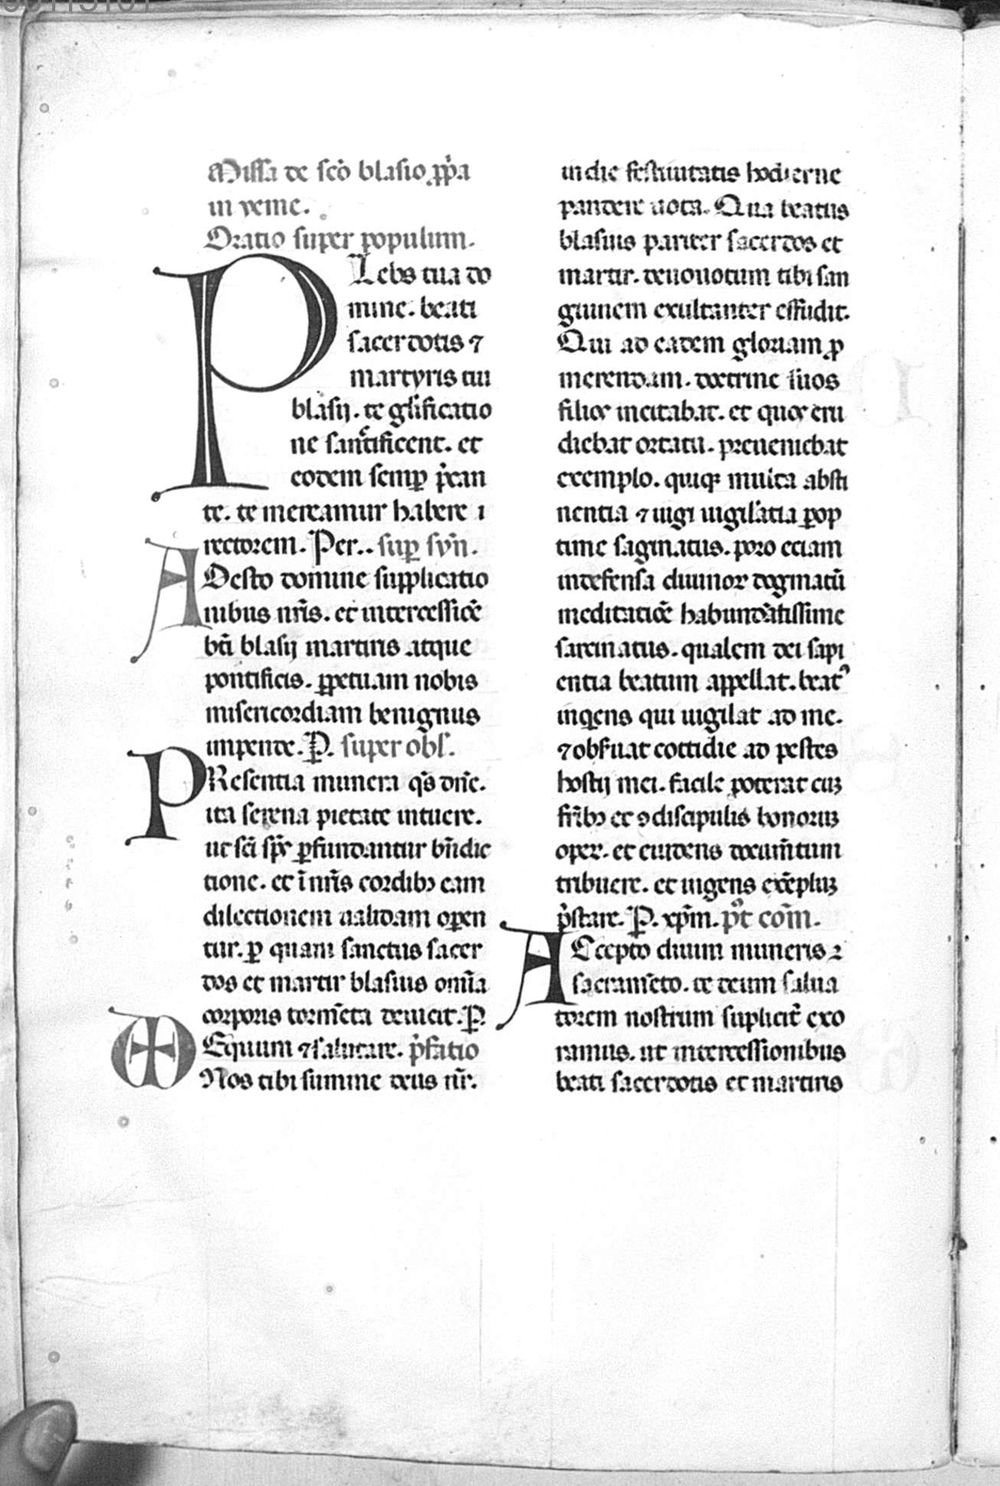 Missa de sc̃o blasio ꝓp̃a
in veme.
Oratio super populum.
PLebs tua do
mine. beati
sacerdotis ⁊
martyris tui
blasij. te gl̃ificatio
ne san̄tificent. et
eodem semꝑ p̃can
te. te mereamur habere ı
rectorem. Per.. suꝑ syn̄.
ADesto domine supplicatio
nibus nr̃is. et intercessiõe
bt̃i blasij martiris atque
pontificis. ꝑpetuam nobis
misericordiam benignus
impende. P. super obl̃.
PResentia munera qs̃ dñe.
ita serena pietate intuere.
ut sc̃i sp̃s ꝑfundantur bñdic
tione. et ĩ nr̃is cordibꝫ eam
dilectionem ualidam open
tur. ꝑ quam sanctus sacer
dos et martir blasius omı̃a
corporis torm̃eta deuicit. P.
Equum ⁊ salutare. p̃fatio
Nos tibi summe deus nr̃.
in die festiuitatis hodierne
pandere uota. Qua beatus
blasius pariter sacerdos et
martir. deuouotum tibi san
guinem exultanter effudit.
Qui ad eadem gloriam ꝓ
merendam. doctrine suos
filios incitabat. et quos eru
diebat ortatu. preueniebat
exemplo. quiqꝫ multa absti
nentia ⁊ uigi uigilãtia ꝓop
time saginatus. poro eciam
indefensa diuinoꝝ dogmatũ
meditatiõe habundãtissime
sarcinatus. qualem dei sapi
entia beatum appellat. beatꝰ
inqens qui uigilat ad me.
⁊ obseruat cottidie ad postes
hostij mei. facile poterat eiꝫ
fr̃ibꝫ et ꝯdiscipulis bonoruꝫ
opeꝝ. et euidens docum̃tum
tribuere. et uigens exẽpluꝫ
p̃stare. P. xp̃m. pꝰt com̃.
ACcepto diuini muneris ꝛ
sacram̃eto. te deum salua
torem nostrum suplicit̃ exo
ramus. ut intercessionibus
beati sacerdotis et martiris